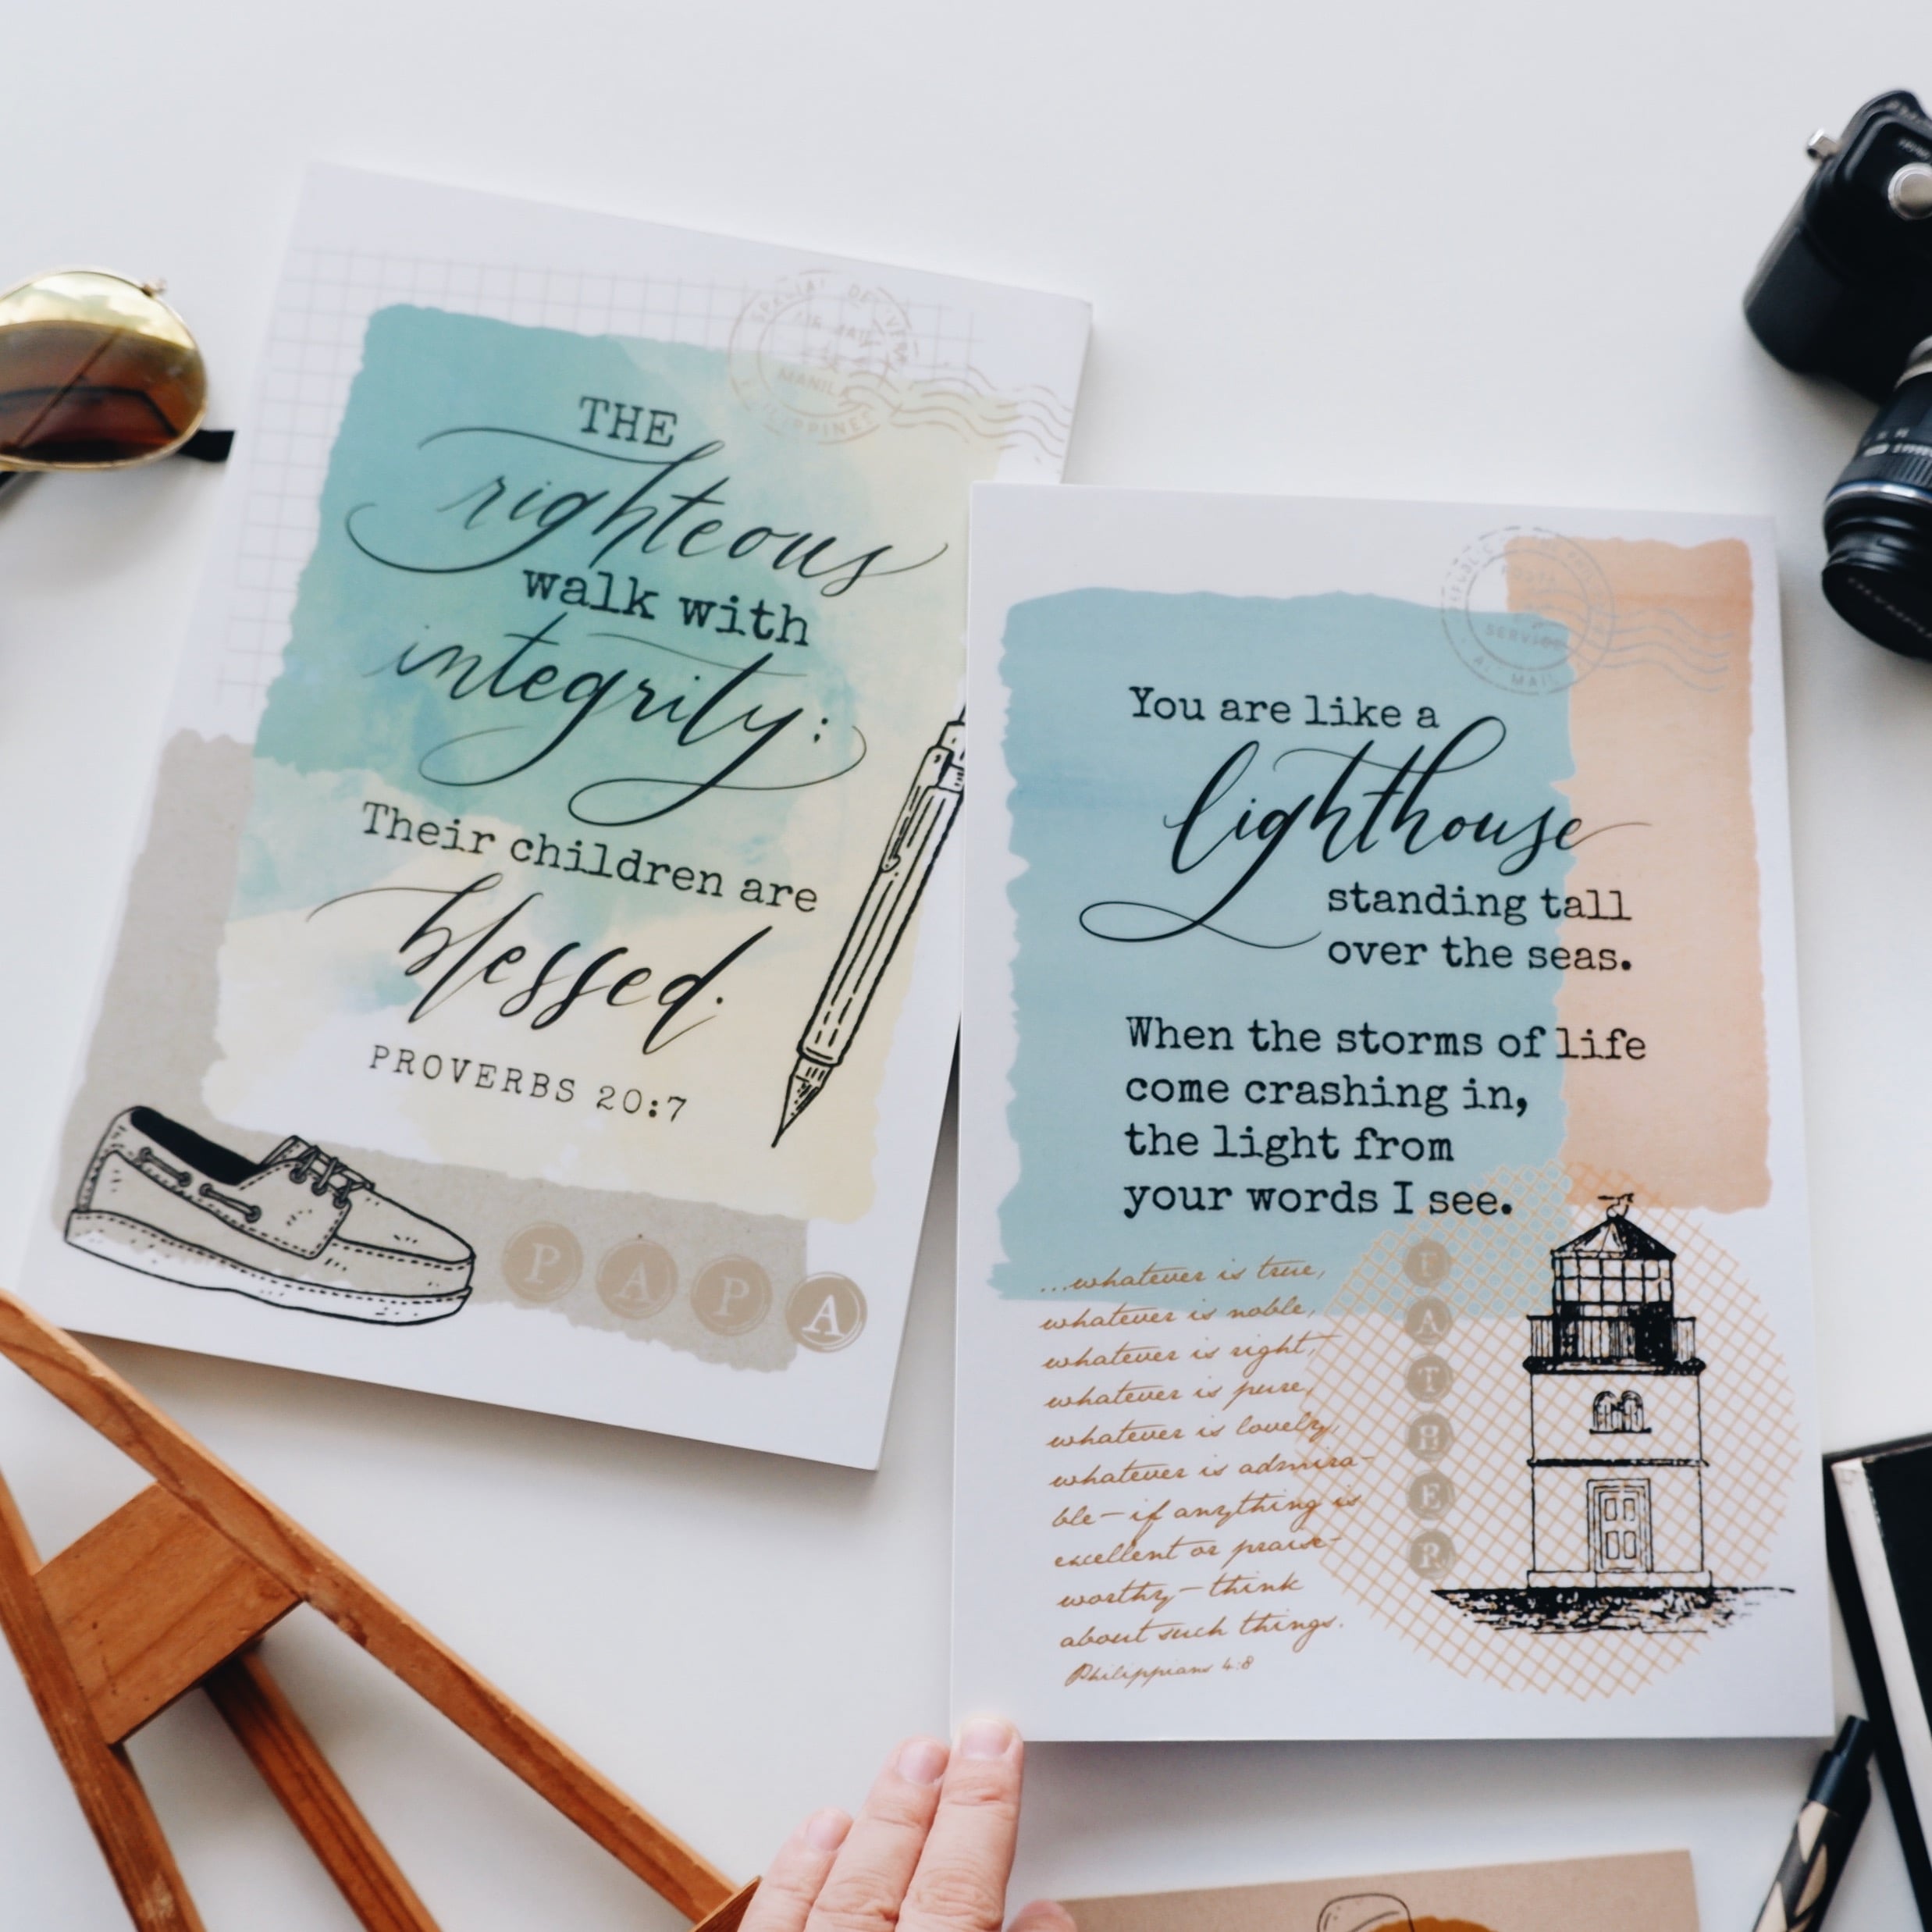 THE
righteous
walk with
integrity:
Their children are
blessed.
PROVERBS 20:7
PAPA
AIR MAIL
MANILA
You are like a
lighthouse
standing tall
over the seas.
When the storms of life
come crashing in,
the light from
your words I see.
...whatever is true,
whatever is noble,
whatever is right,
whatever is pure,
whatever is lovely,
whatever is admira-
ble-if anything is
excellent or praise-
worthy-think
about such things.
Philippians 4:8
FATHER
SERVICE
MAIL